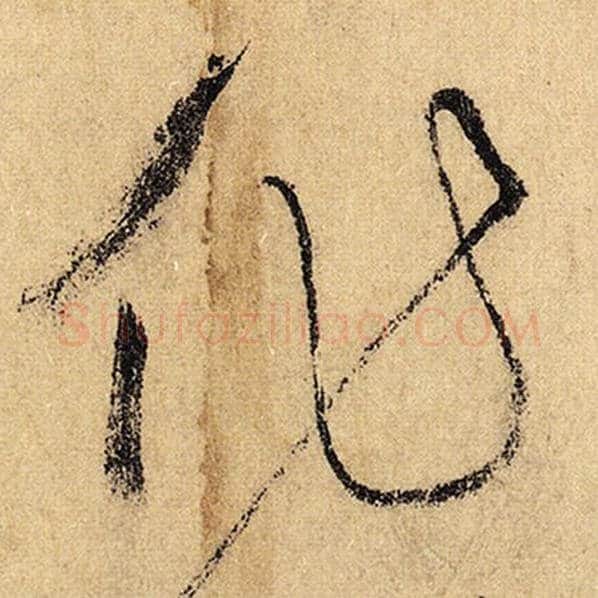 化
Shufaziliao.COM